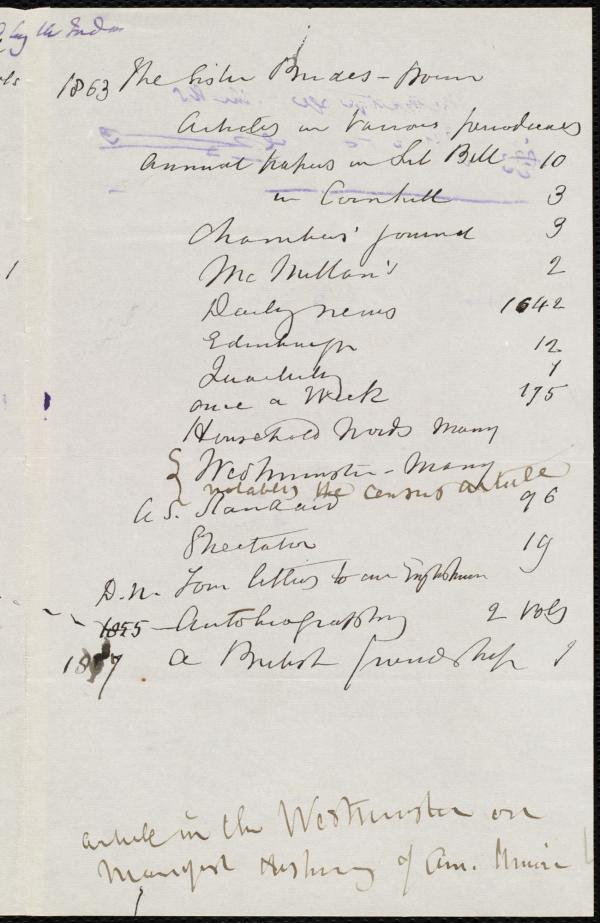 by the Indian
1863 The Sister Brides - Poem
Articles in various periodicals
Annual papers in Lib Bell 10
in Cornhill 3
Chambers' Journal 3
McMillan's 2
Daily news 1642
Edinburgh 12
Quarterly 1
once a Week 175
Household Words Many
Westminster - Many
notably the census article
A. S. Standard 96
Spectator 19
D. N. Four letters to an Englishman
1855 - Autobiography 2 vols
1867 A British friendship 1
article in the Westminster on
Manifest destiny of Am. Union